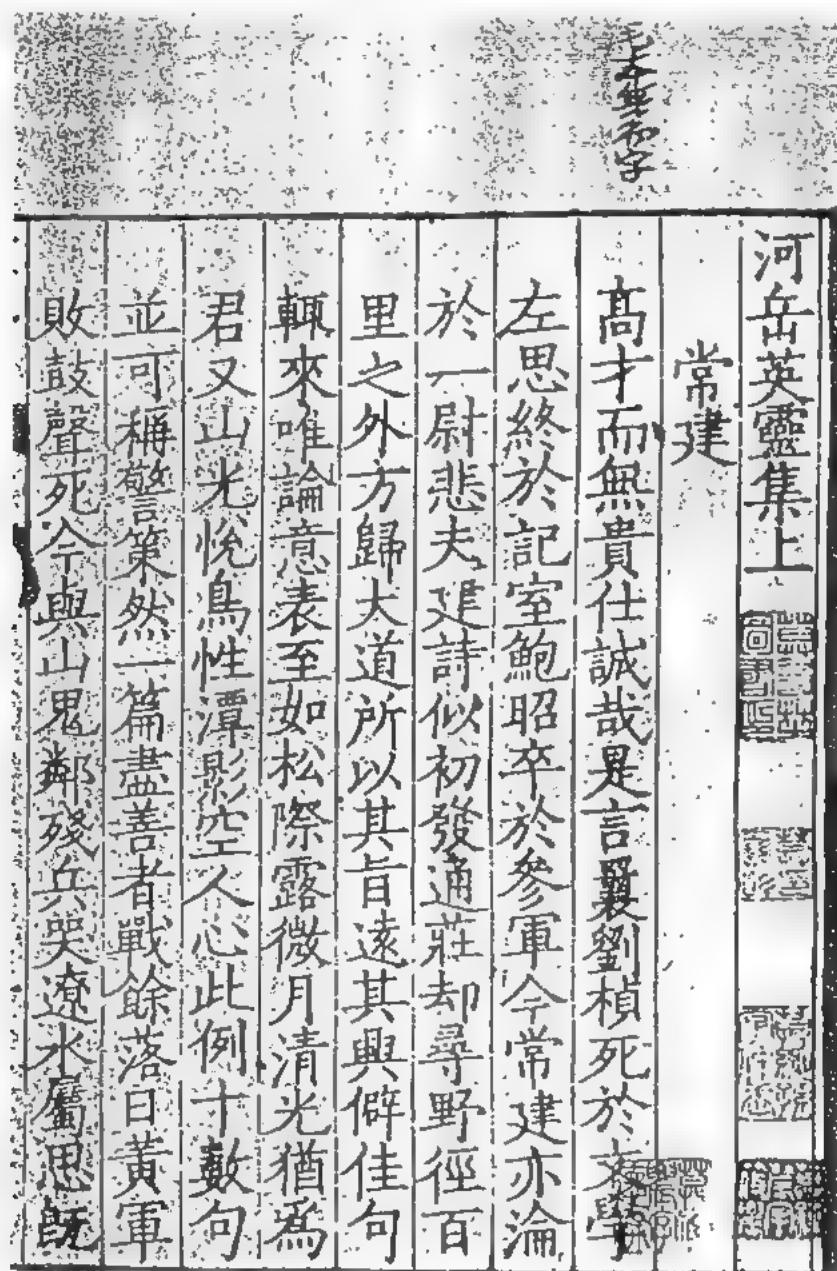 毛本無和字
河岳英靈集上
常建
高才而無貴仕誠哉是言曩劉楨死於文學
左思終於記室鮑昭卒於參軍今常建亦淪
於一尉悲夫建詩似初發通莊却尋野徑百
里之外方歸大道所以其旨遠其興僻佳句
輒來唯論意表至如松際露微月清光猶爲
君又山光悅鳥性潭影空人心此例十數句
並可稱警策然一篇盡善者戰餘落日黃軍
敗鼓聲死今與山鬼鄰殘兵哭遼水屬思旣